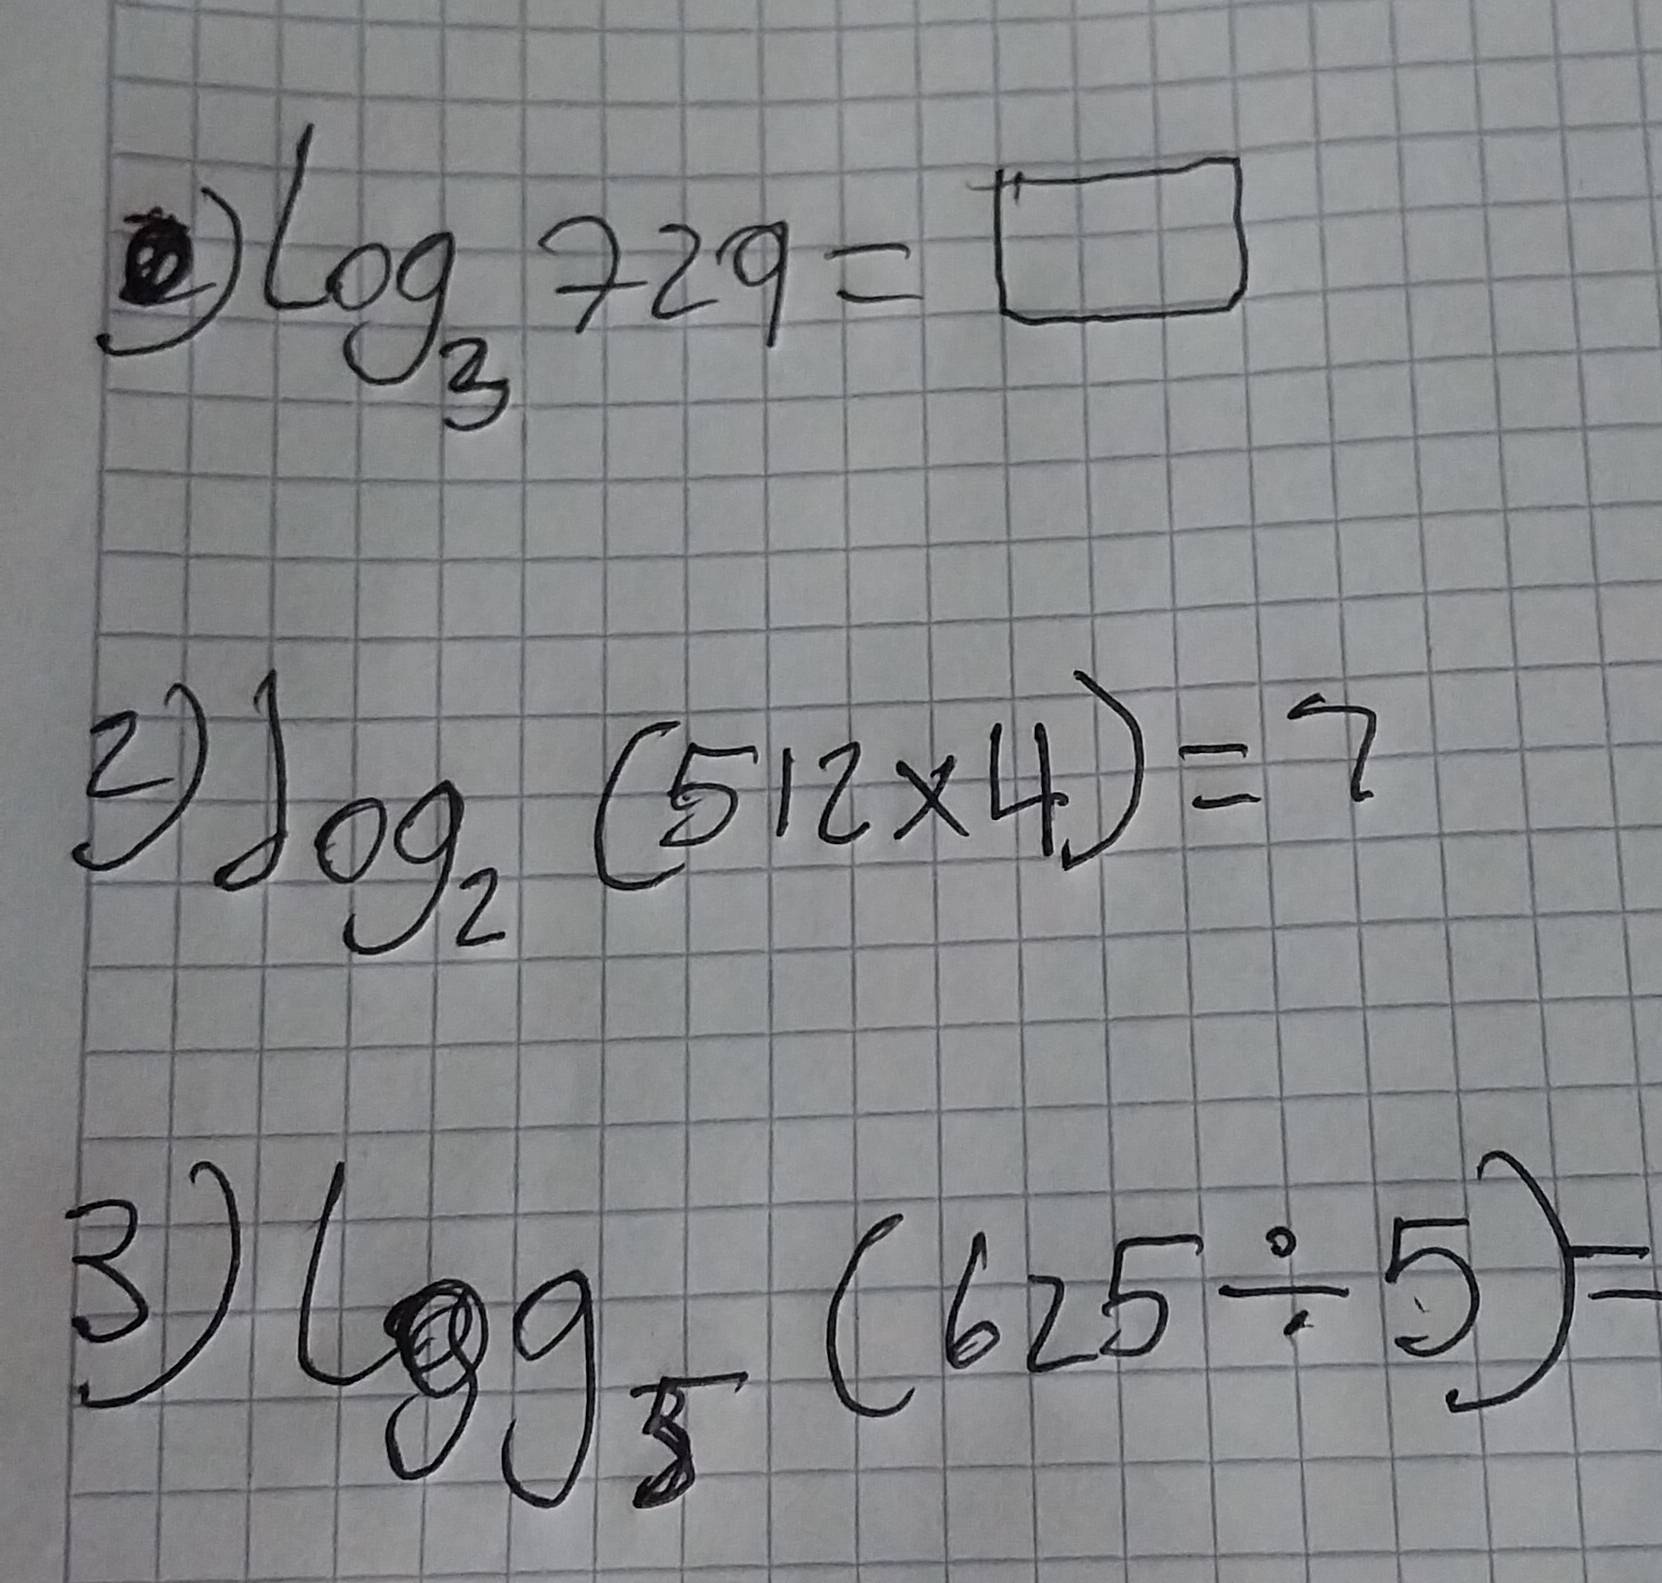 ) log₃ 729 =
2) log₂ (512 × 4) = ?
3) log₅ (625 ÷ 5) =